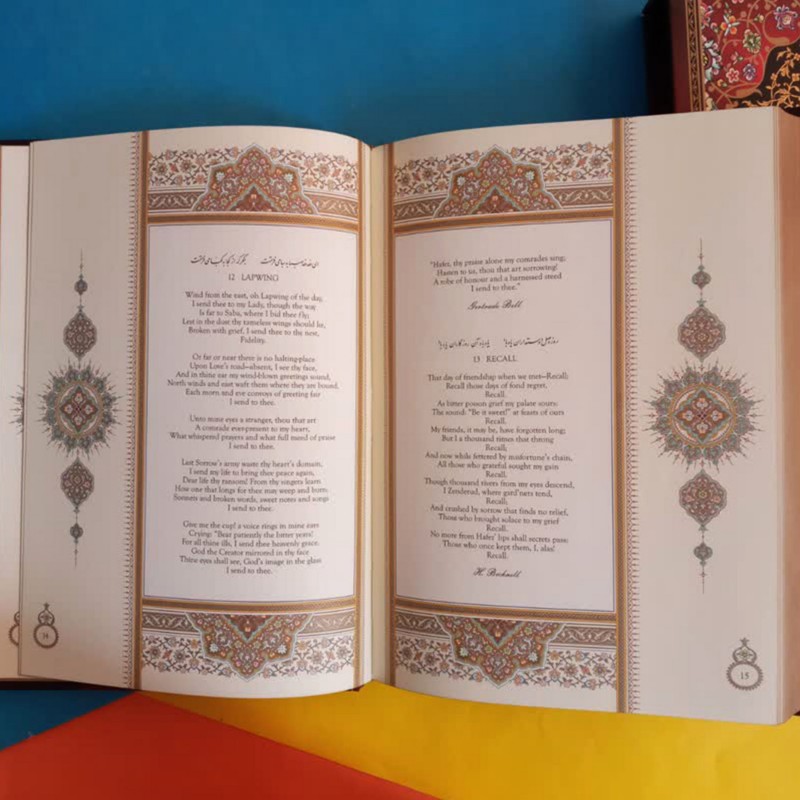 ای هدهد صبا به سبا می فرستمت بنگر که از کجا به کجا می فرستمت
12 LAPWING
Wind from the east, oh Lapwing of the day,
I send thee to my Lady, though the way
Is far to Saba, where I bid thee fly;
Lest in the dust thy tameless wings should lie,
Broken with grief, I send thee to thy nest,
Fidelity.
Or far or near there is no halting-place
Upon Love's road—absent, I see thy face,
And in thine ear my wind-blown greetings sound,
North winds and east waft them where they are bound,
Each morn and eve convoys of greeting fair
I send to thee.
Unto mine eyes a stranger, thou that art
A comrade ever-present to my heart,
What whispered prayers and what full meed of praise
I send to thee.
Lest Sorrow's army waste thy heart's domain,
I send my life to bring thee peace again,
Dear life thy ransom! From thy singers learn
How one that longs for thee may weep and burn,
Sonnets and broken words, sweet notes and songs
I send to thee.
Give me the cup! a voice rings in mine ears
Crying: "Bear patiently the bitter years!
For all thine ills, I send thee heavenly grace.
God the Creator mirrored in thy face
Thine eyes shall see, God's image in the glass
I send to thee.
14
"Hafez, thy praise alone my comrades sing;
Hasten to us, thou that art sorrowing!
A robe of honour and a harnessed steed
I send to thee."
Gertrude Bell
روز وصل دوستداران یاد باد یاد باد آن روزگاران یاد باد
13 RECALL
That day of friendship when we met—Recall;
Recall those days of fond regret,
Recall.
As bitter poison grief my palate sours:
The sound: "Be it sweet!" at feasts of ours
Recall.
My friends, it may be, have forgotten long;
But I a thousand times that throng
Recall;
And now while fettered by misfortune's chain,
All those who grateful sought my gain
Recall.
Though thousand rivers from my eyes descend,
I Zenderud, where gard'ners tend,
Recall;
And crushed by sorrow that finds no relief,
Those who brought solace to my grief
Recall.
No more from Hafez' lips shall secrets pass:
Those who once kept them, I, alas!
Recall.
H. Bicknell
15